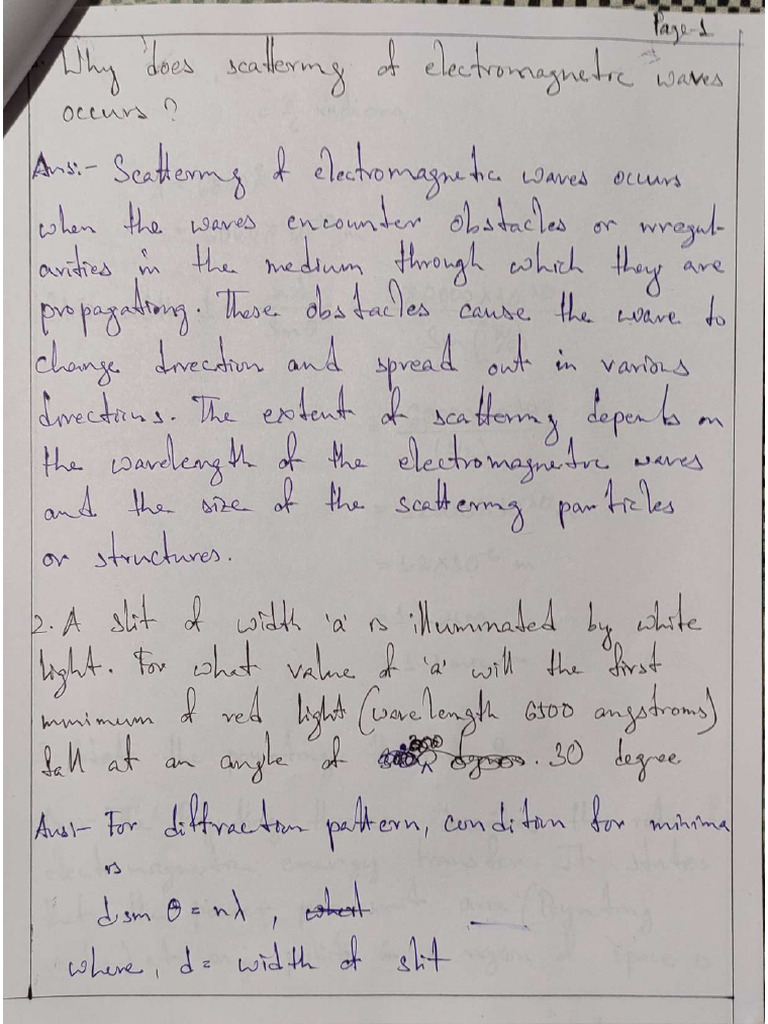 Page-1
Why does scattering of electromagnetic waves
occurs?
Ans:- Scattering of electromagnetic waves occurs
when the waves encounter obstacles or irregul-
arities in the medium through which they are
propagating. These obstacles cause the wave to
change direction and spread out in various
directions. The extent of scattering depends on
the wavelength of the electromagnetic waves
and the size of the scattering particles
or structures.
2. A slit of width 'a' is illuminated by white
light. For what value of 'a' will the first
minimum of red light (wavelength 6500 angstroms)
fall at an angle of 30 degree
Ans:- For diffraction pattern, condition for minima
is
d sin θ = nλ,
where, d = width of slit